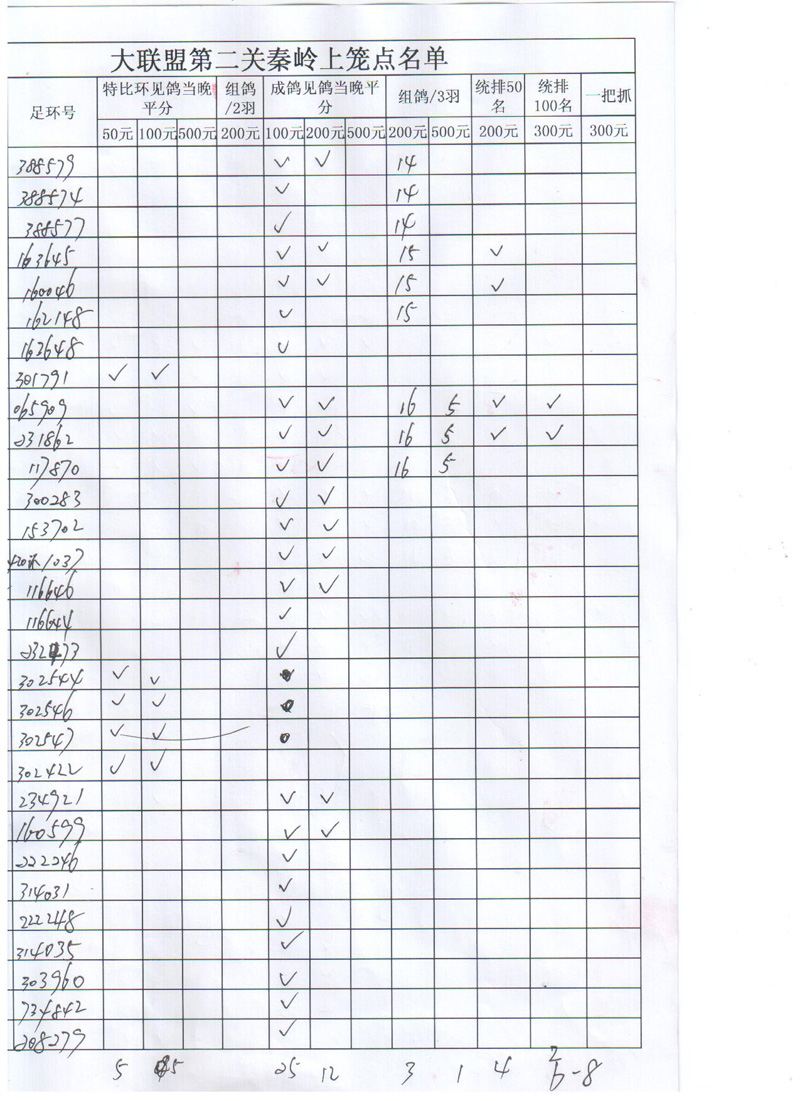 大联盟第二关秦岭上笼点名单
足环号 特比环见鸽当晚平分 组鸽/2羽 成鸽见鸽当晚平分 组鸽/3羽 统排50名 统排100名 一把抓
50元 100元 500元 200元 100元 200元 500元 200元 500元 200元 300元 300元
388579 ✓ ✓ 14
388574 ✓ 14
388577 ✓ 14
163645 ✓ ✓ 15 ✓
160046 ✓ ✓ 15 ✓
162148 ✓ 15
163648 ✓
301791 ✓ ✓
065909 ✓ ✓ 16 5 ✓ ✓
231862 ✓ ✓ 16 5 ✓ ✓
117870 ✓ ✓ 16 5
300283 ✓ ✓
153702 ✓ ✓
1037 ✓ ✓
116646 ✓ ✓
116644 ✓
✓
302544 ✓ ✓
302546 ✓ ✓
302547 ✓ ✓
302422 ✓ ✓
234921 ✓ ✓
160599 ✓ ✓
222246 ✓
314031 ✓
222248 ✓
314035 ✓
303960 ✓
734842 ✓
208279 ✓
5 5 25 12 3 1 4 2
6-8